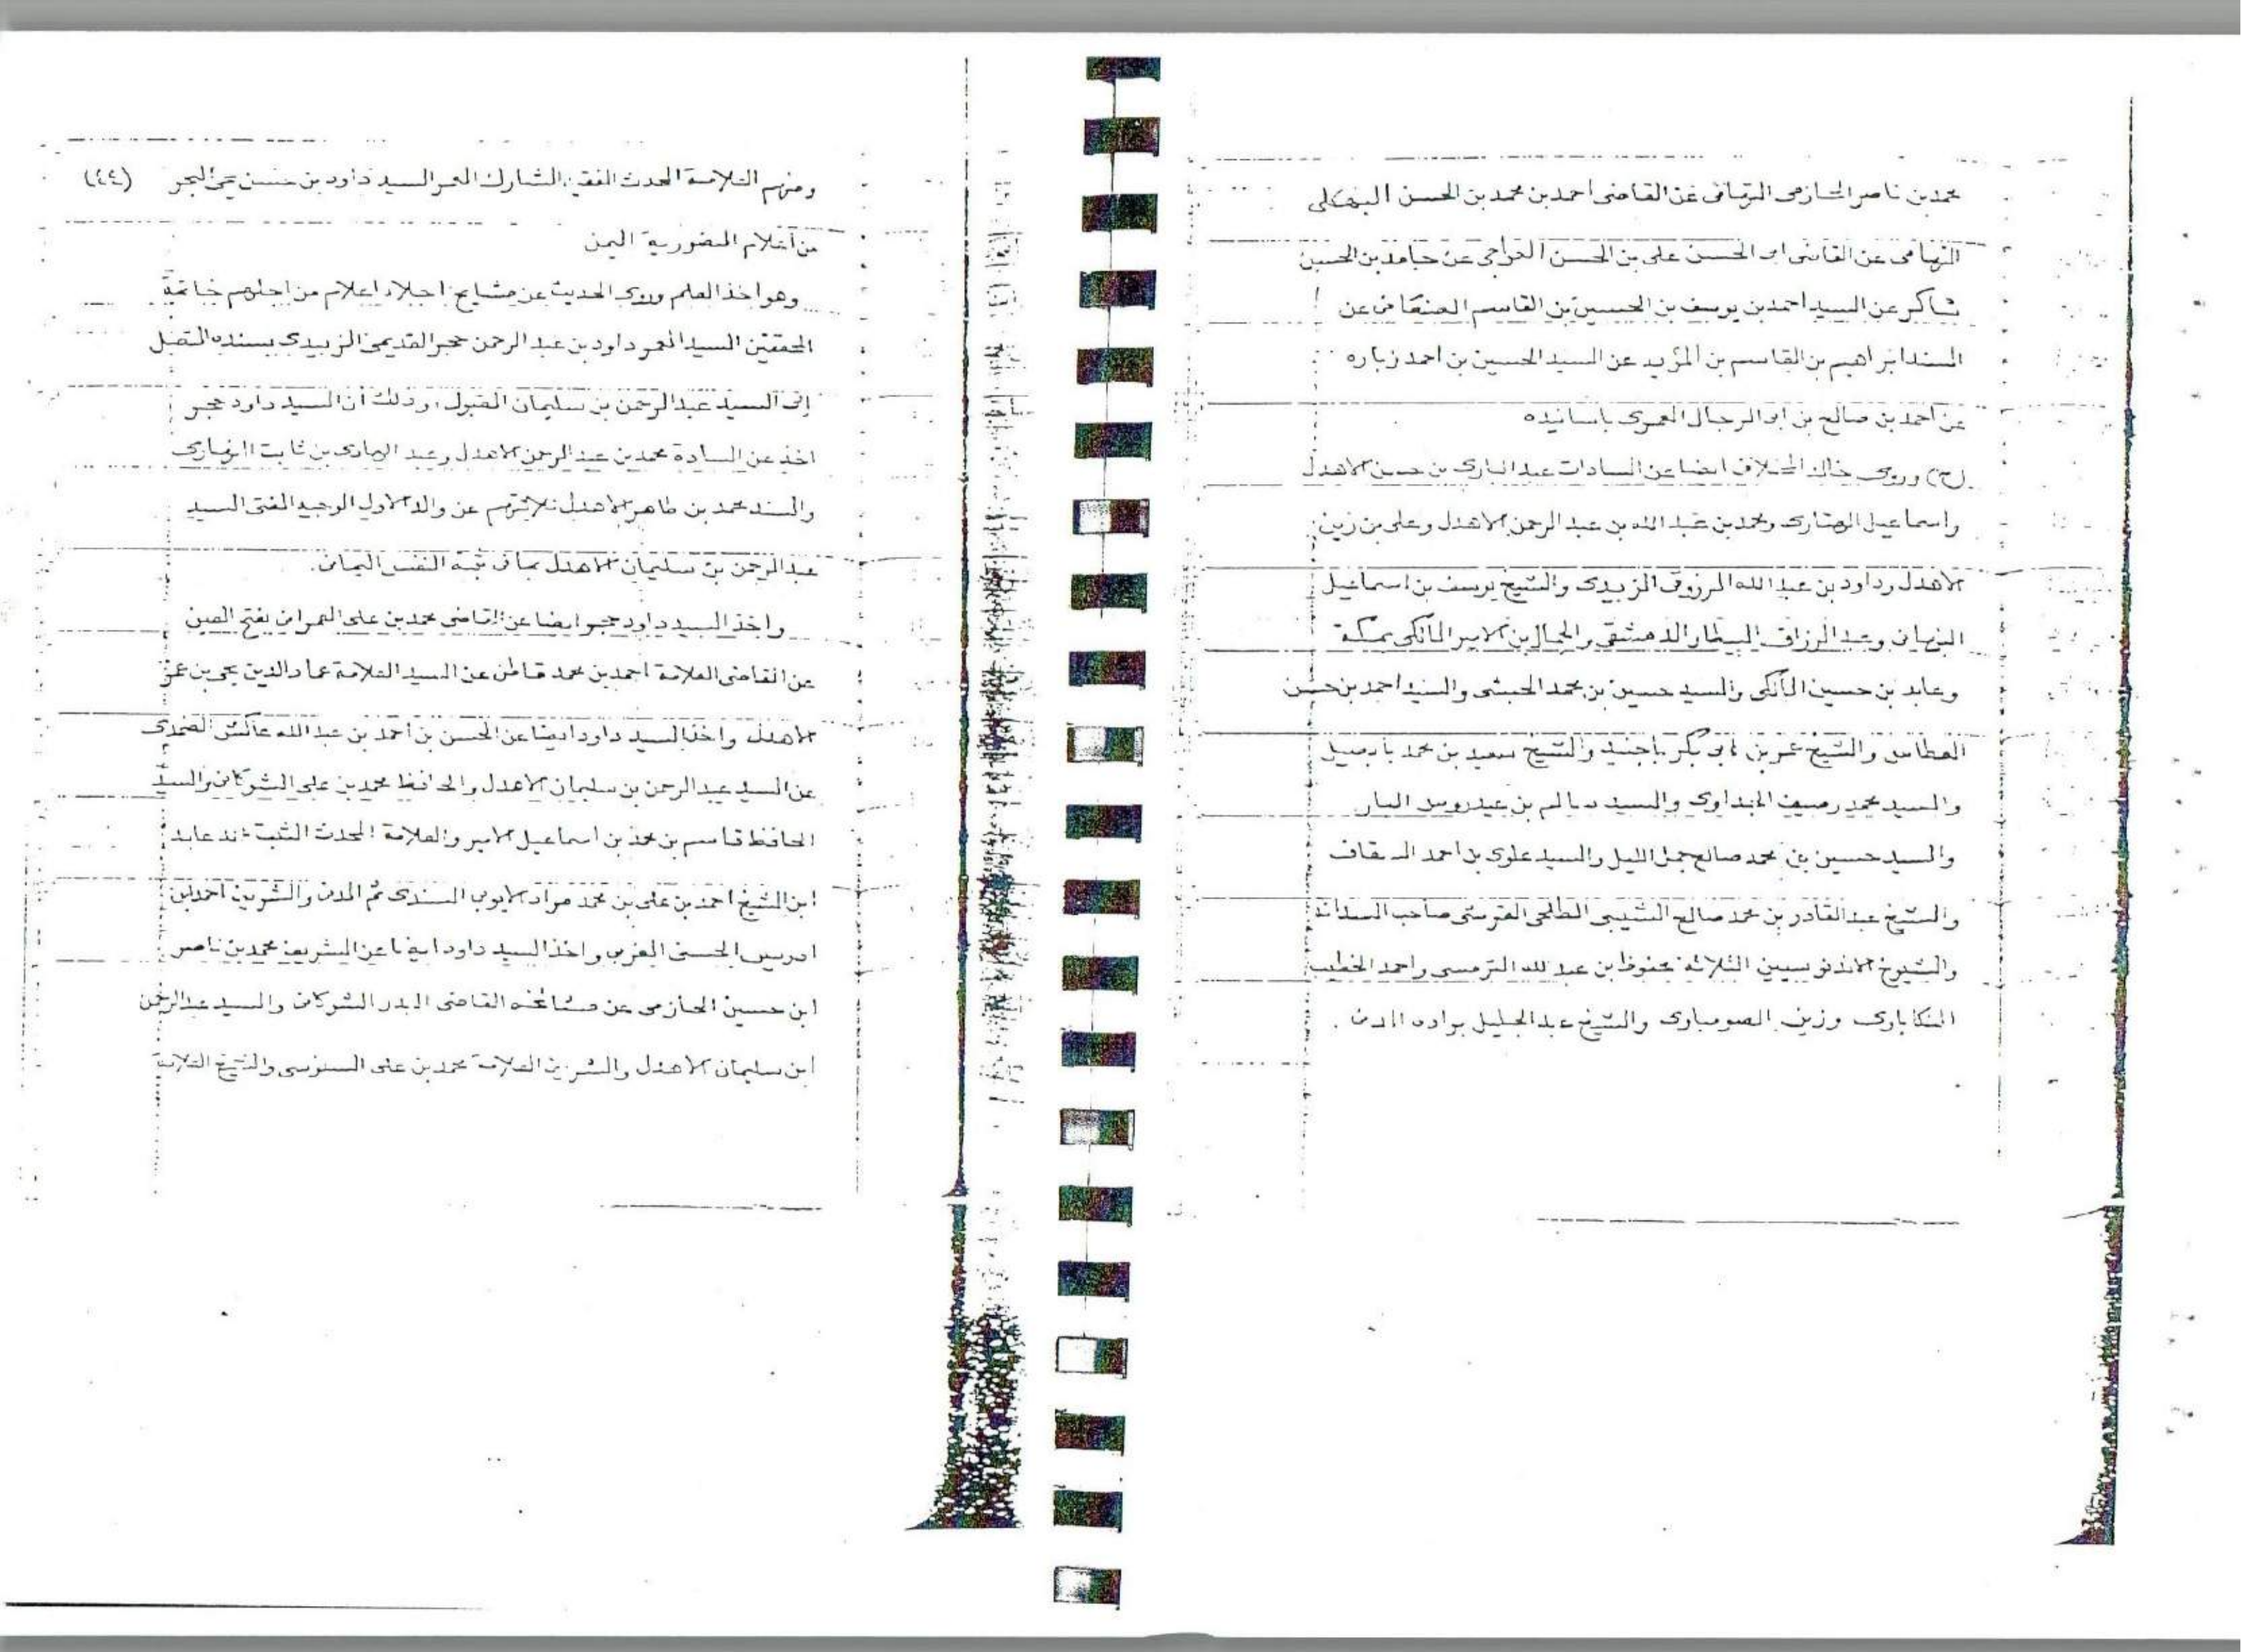 محمد بن ناصر الحازمى عن القاضى احمد بن محمد بن الحسن البهكلى
التهامى عن القاضى ابى الحسن على بن الحسن عن حامد بن الحسين
شاكر عن السيد احمد بن يوسف بن الحسين بن القاسم الصنعانى عن
المسند ابراهيم بن القاسم بن المؤيد عن السيد الحسين بن احمد زباره
عن احمد بن صالح بن ابى الرجال العمرى باسانيده
(ح) وروى ايضا عن السادات عبد البارى بن حسن الاهدل
واسماعيل ومحمد بن عبد الله بن عبد الرحمن الاهدل وعلى بن زين
الاهدل وداود بن عبد الله المرزوقى الزبيدى والشيخ يوسف بن اسماعيل
النبهانى وعبد الرزاق البيطار الدمشقى والجمال بن الامير المالكى بمكة
وعابد بن حسين المالكى والسيد حسين بن محمد الحبشى والسيد احمد بن حسن
العطاس والشيخ عمر بن ابى بكر باجنيد والشيخ سعيد بن محمد بابصيل
والسيد محمد والسيد سالم بن عيدروس البار
والسيد حسين بن محمد صالح جمل الليل والسيد علوى بن احمد السقاف
والشيخ عبد القادر بن محمد صالح الشيبى الطلحى القرشى صاحب السدانة
والشيوخ الاندنوسيين الثلاثة محفوظ بن عبد الله الترمسى واحمد الخطيب
المنكابارى وزين الصومباوى والشيخ عبد الجليل براده المدنى .
ومنهم العلامة المحدث الفقيه المشارك المعمر السيد داود بن حسن يحيى البحر (٤٤)
من اعلام المنصورية اليمن
وهو اخذ العلم وروى الحديث عن مشايخ اجلاء اعلام من اجلهم خاتمة
المحققين السيد المعمر داود بن عبد الرحمن حجر القديمى الزبيدى بسنده المتصل
إلى السيد عبد الرحمن بن سليمان المقبول، وذلك أن السيد داود حجر
اخذ عن السادة محمد بن عبد الرحمن الاهدل وعبد الهادى بن ثابت النهارى
والسند محمد بن طاهر الاهدل ثلاثتهم عن والد الاول الوجيه المفتى السيد
عبد الرحمن بن سليمان الاهدل بما فى ثبته النفس اليمانى.
واخذ السيد داود حجر ايضا عن القاضى محمد بن على العمرانى بفتح العين
عن القاضى العلامة احمد بن محمد قاطن عن السيد العلامة عماد الدين يحيى بن عمر
الاهدل واخذ السيد داود ايضا عن الحسن بن احمد بن عبد الله عاكش الضمدى
عن السيد عبد الرحمن بن سليمان الاهدل والحافظ محمد بن على الشوكانى والسيد
الحافظ قاسم بن محمد بن اسماعيل الامير والعلامة المحدث الثبت عابد
ابن الشيخ احمد بن على بن محمد مراد الايوبى السندى ثم المدنى والشريف احمد بن
ادريس الحسنى المغربى واخذ السيد داود ايضا عن الشريف محمد بن ناصر
ابن حسين الحازمى عن مشائخه القاضى البدر الشوكانى والسيد عبد الرحمن
ابن سليمان الاهدل والشريف العلامة محمد بن على السنوسى والشيخ العلامة